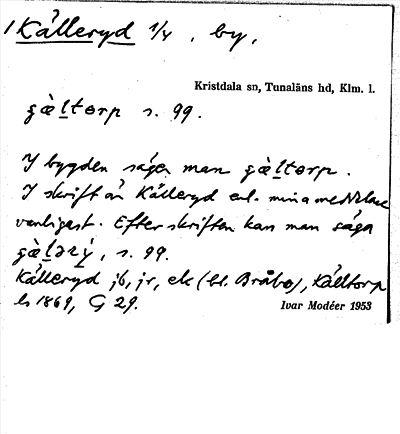 1 Kålleryd 1/4 . by,
Kristdala sn, Tunaläns hd, Klm. l.
gàltorp s. 99.
I bygden säger man gàltorp.
I skrift är Kålleryd enl. mina meddelare
vanligast. Efter skriften kan man säga
gàləry, s. 99.
Kålleryd jb, jr, ek (bl. Bråbo), Kålltorp
ls 1869, G 29.
Ivar Modéer 1953